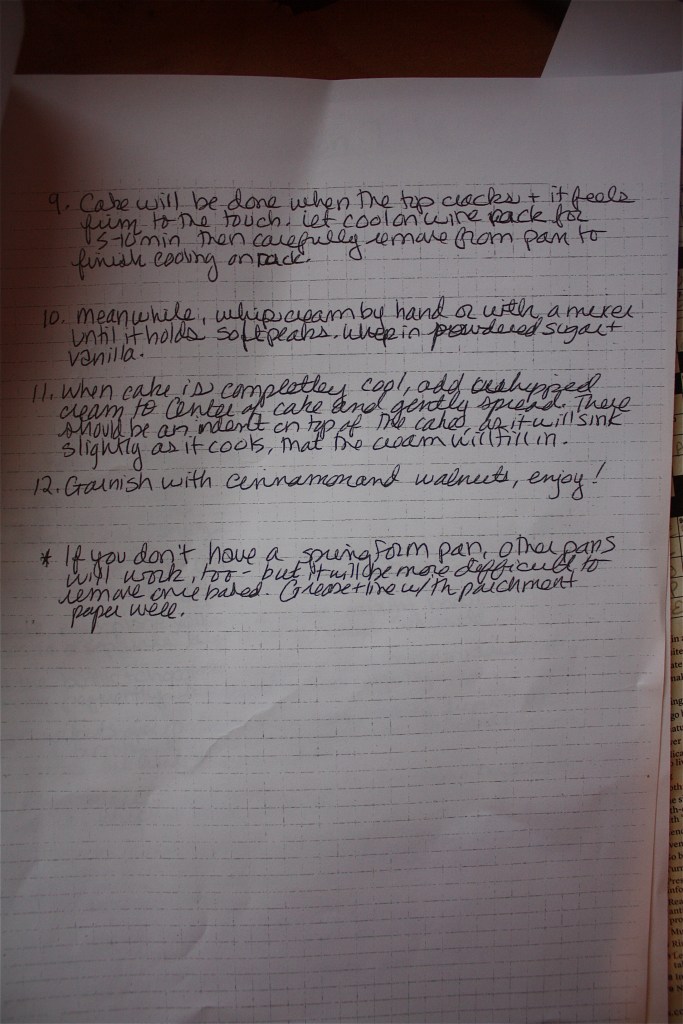 9. Cake will be done when the top cracks + it feels
firm to the touch. Let cool on wire rack for
5-10 min then carefully remove from pan to
finish cooling on rack.
10. Meanwhile, whip cream by hand or with a mixer
until it holds soft peaks. Whip in powdered sugar +
vanilla.
11. When cake is completley cool, add whipped
cream to center of cake and gently spread. There
should be an indent on top of the cake, as it will sink
slightly as it cools, that the cream will fill in.
12. Garnish with cinnamon and walnuts, enjoy!
* If you don't have a springform pan, other pans
will work, too - but it will be more difficult to
remove once baked. Grease + line with parchment
paper well.